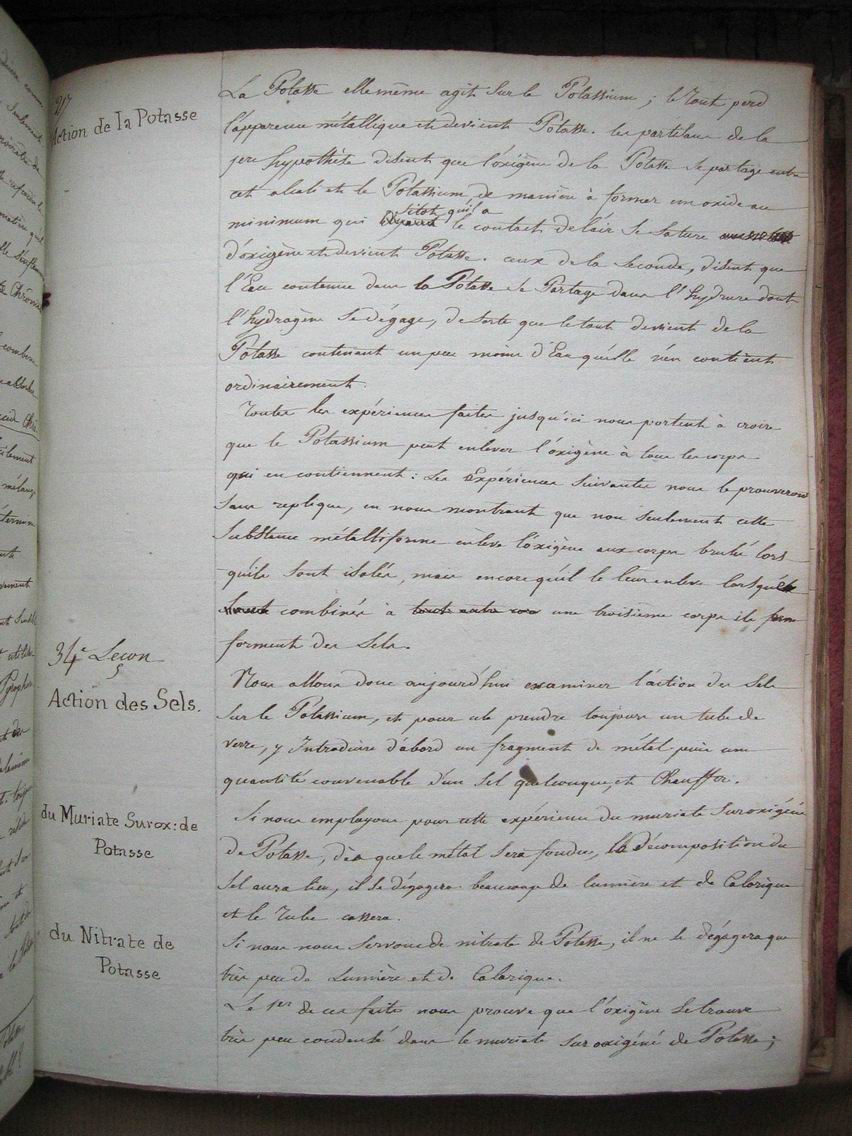 217
Action de la Potasse
La Potasse elle même agit Sur le Potassium ; le tout perd
l'apparence métallique et devient Potasse. les partisans de la
1ere hypothèse disent que l'oxigène de la Potasse se partage entre
cet alcali et le Potassium de manière à former un oxide au
minimum qui Sitot qu'il a le contact de l'air se Sature
d'oxigène et devient Potasse. ceux de la Seconde, disent que
l'Eau contenue dans la Potasse se Partage dans l'hydrure dont
l'hydrogène Se dégage, de Sorte que le tout devient de la
Potasse contenant un peu moins d'Eau qu'elle n'en contient
ordinairement.
Toutes les expériences faites jusqu'ici nous portent à croire
que le Potassium peut enlever l'oxigène à tous les corps
qui en contiennent : Les Expériences Suivantes nous le prouveront
Sans replique, en nous montrant que non Seulement cette
Substance métalliforme enlève l'oxigène aux corps brulés lors
qu'ils Sont isolés, mais encore qu'il le leur enleve lorsque
combinés à une troisième corps ils
forment des Sels.
34e Leçon
Action des Sels.
Nous allons donc aujourd'hui examiner l'action des Sels
Sur le Potassium, et pour cela prendre toujours un tube de
verre, y Introduire d'abord un fragment de métal puis une
quantité convenable d'un Sel quelconque, et Chauffer.
du Muriate Surox: de
Potasse
Si nous employons pour cette expérience du muriate Suroxigéné
de Potasse, dès que le métal Sera fondu, la décomposition du
Sel aura lieu, il Se dégagera beaucoup de lumière et de Calorique
et le Tube cassera.
du Nitrate de
Potasse
Si nous nous Servons de nitrate de Potasse, il ne Se dégagera que
très peu de Lumière et de Calorique.
Le 1er de ces faits nous prouve que l'oxigène Se trouve
très peu condensé dans le muriate Suroxigéné de Potasse ;